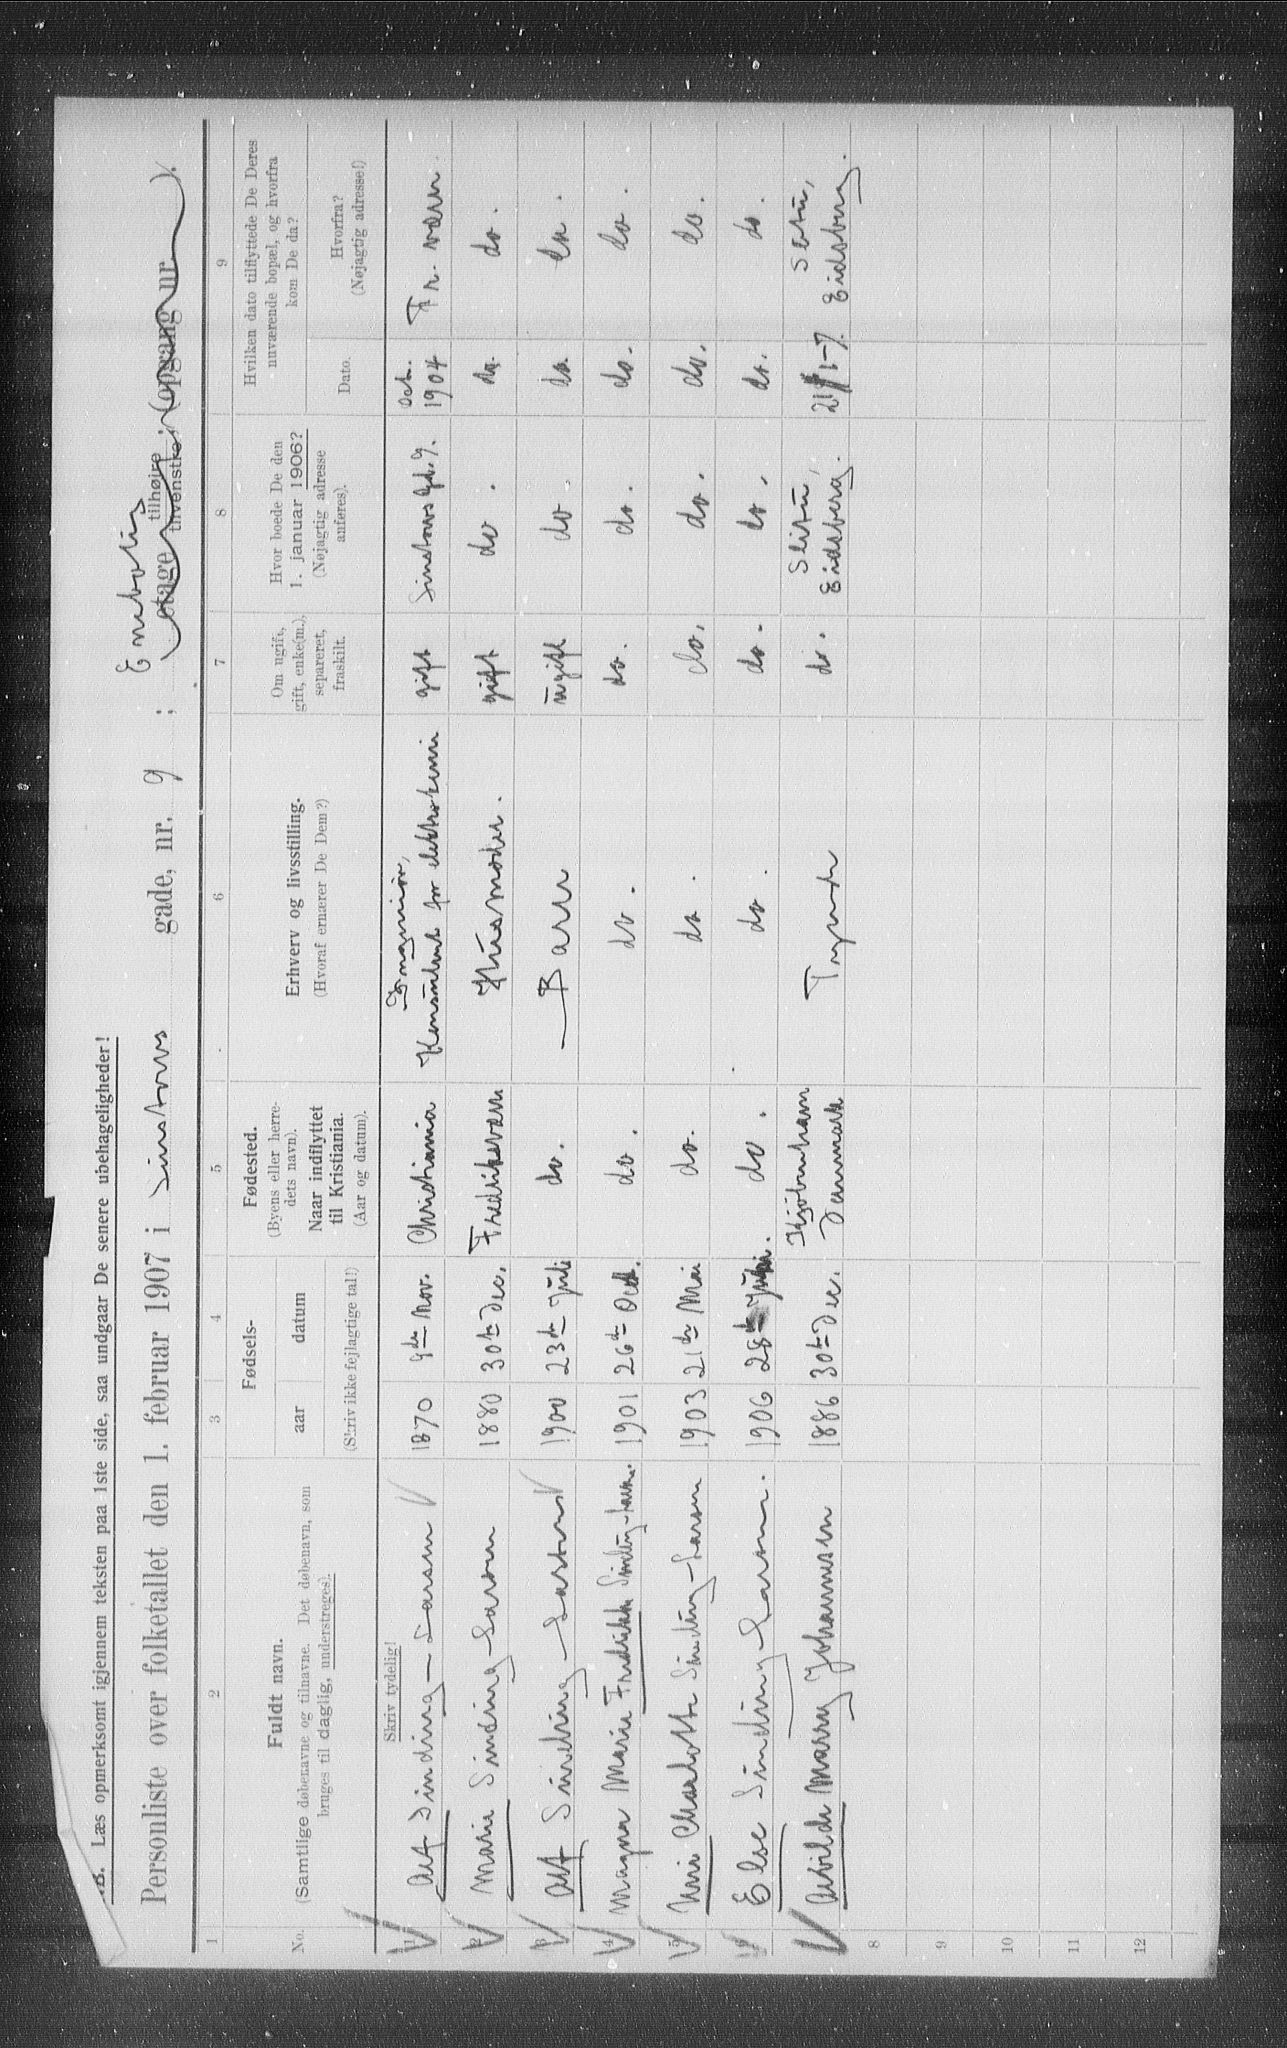 NB. Læs opmerksomt igjennem teksten paa 1ste side, saa undgaar De senere ubehageligheder!
Personliste over folketallet den 1. februar 1907 i Sinsens gade, nr. 9 ; Enebolig etage tilhøire tilvenstre; (opgang nr. ).
1 2 3 4 5 6 7 8 9
No.
Fuldt navn.
(Samtlige døbenavne og tilnavne. Det døbenavn, som
bruges til daglig, understreges).
Fødsels-
aar datum
(Skriv ikke feilagtige tal!)
Fødested.
(Byens eller herre-
dets navn).
Naar indflyttet
til Kristiania.
(Aar og datum).
Erhverv og livsstilling.
(Hvoraf ernærer De Dem?)
Om ugift,
gift, enke(m.),
separeret,
fraskilt.
Hvor boede De den
1. januar 1906?
(Nøjagtig adresse
anføres).
Hvilken dato tilflyttede De Deres
nuværende bopæl, og hvorfra
kom De da?
Dato.
Hvorfra?
(Nøjagtig adresse!)
Skriv tydelig!
1 Alf Sinding-Larsen 1870 9de Nov. Christiania Ingeniør, Konsulent for elektrokemi gift Oct. 1904 Fr. værn
2 Marie Sinding-Larsen 1880 30te Dec. Fredriksværn Husmoder. gift do. do. do.
3 Alf Sinding-Larsen 1900 23de Juli do. Barn ugift do. do. do.
4 Magna Marie Fredrikke Sinding-Larsen. 1901 26de Oct. do. do. do. do. do. do.
5 Charlotte Sinding-Larsen 1903 21de Mai do. do. do. do. do. do.
6 Else Sinding-Larsen. 1906 28de do. do. do. do. do. do.
Marry Johannesen 1886 30te Dec. Kjøbenhavn Danmark do. Slitu, Eidsberg. Slitu, Eidsberg.
8
9
10
11
12